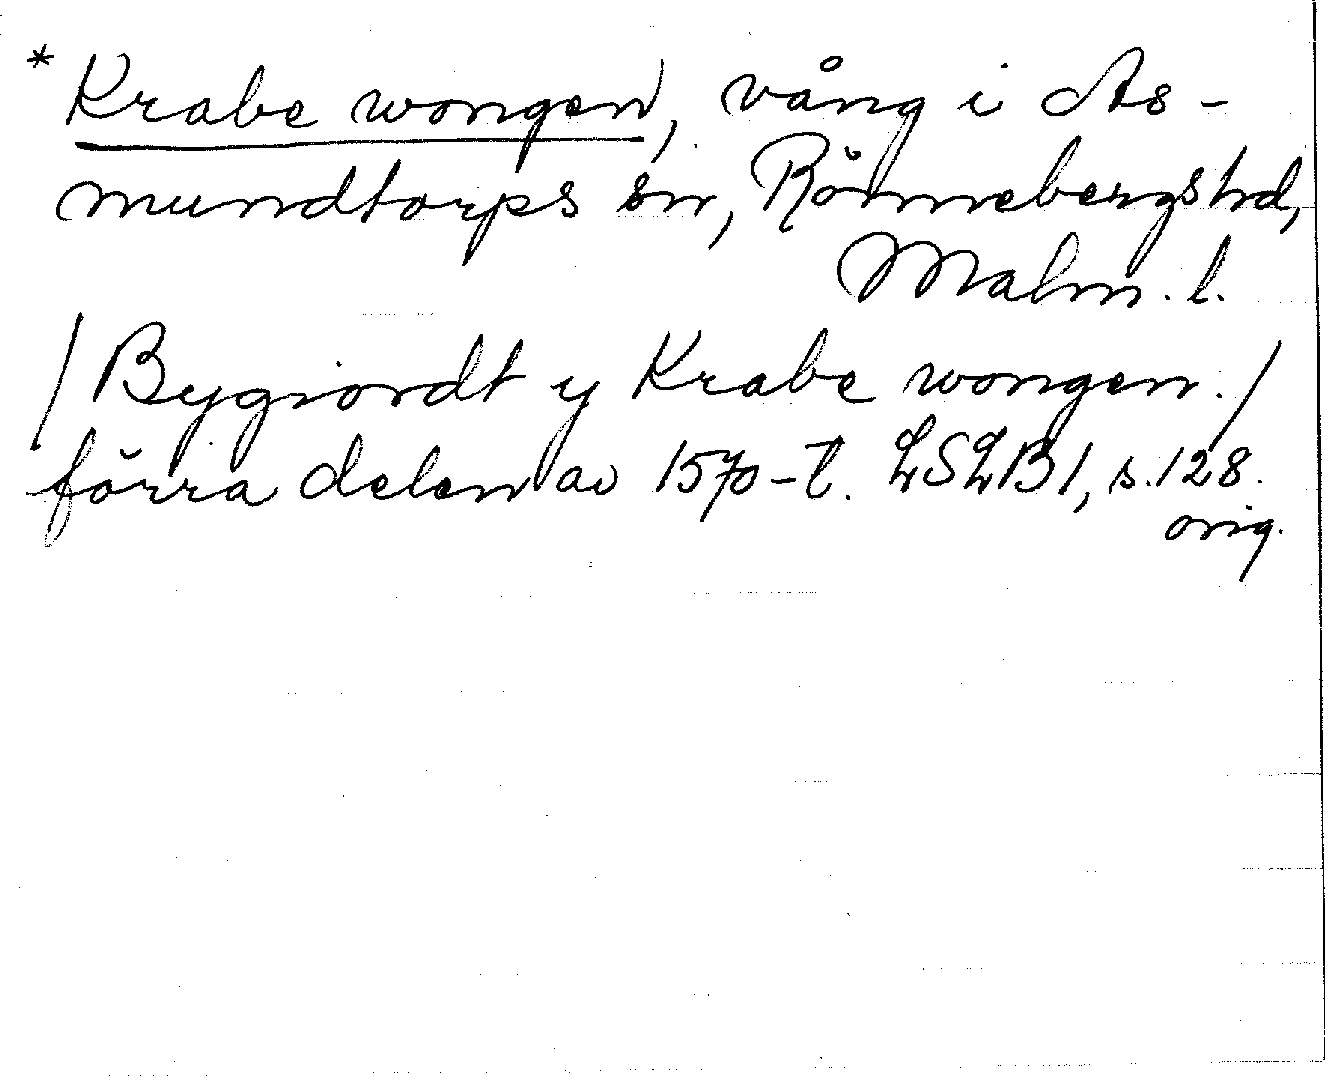 * Krabe wongen, vång i As-
mundtorps sn, Rönnebergs hd,
Malm. l.
/Bygiordt y Krabe wongen./
förra delen av 1570-t. LSLB1, s. 128.
orig.